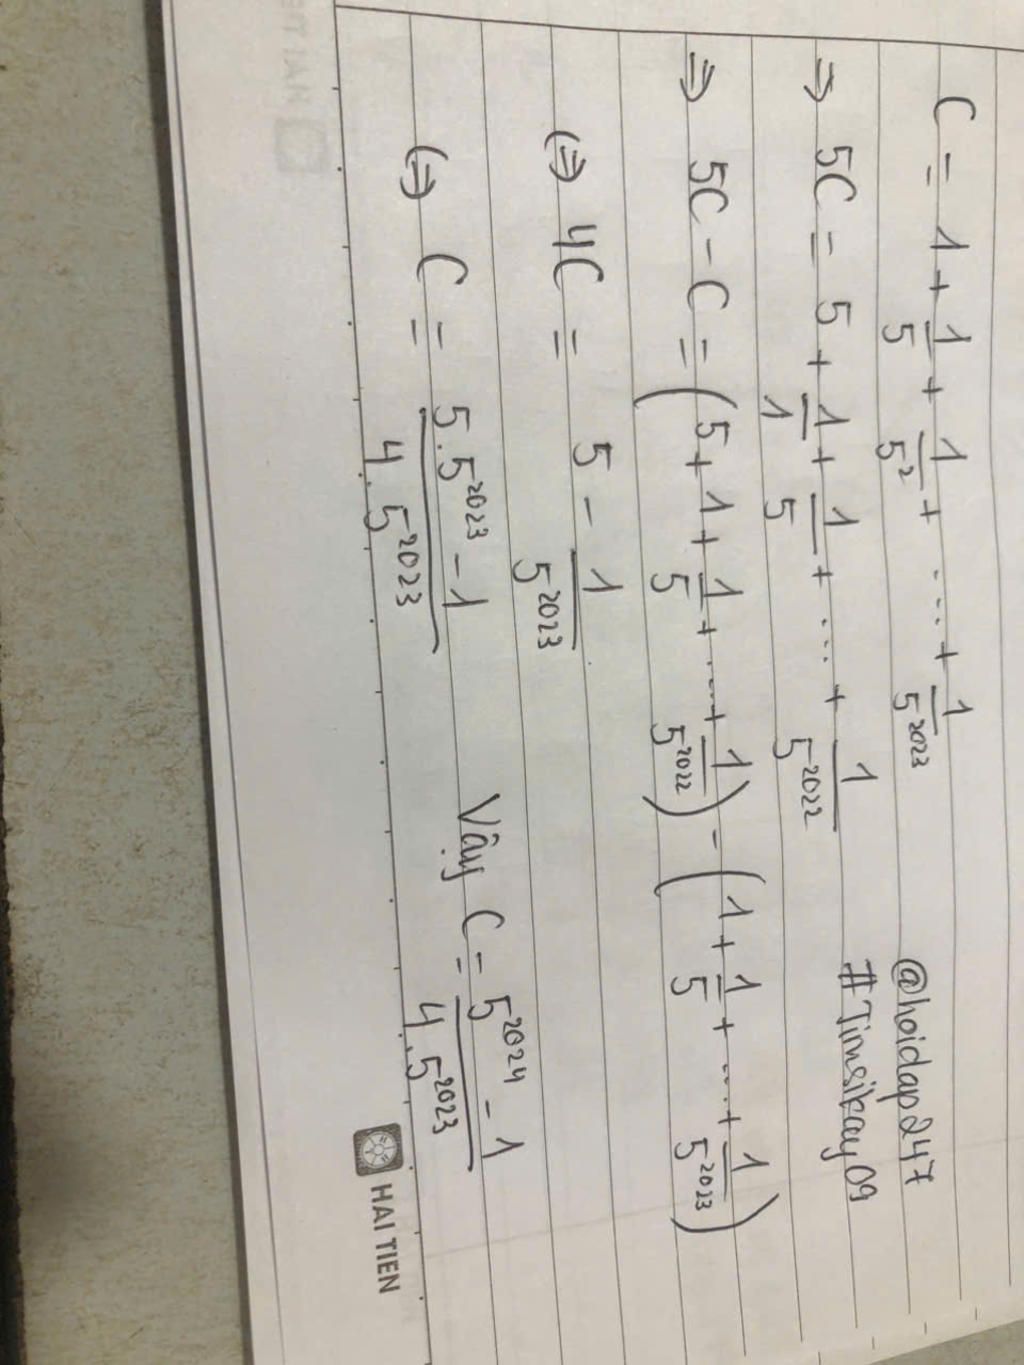 C = 1 + 1/5 + 1/5² + .... + 1/5²⁰²³
@hoidap247
⇒ 5C = 5 + 1/1 + 1/5 + ... + 1/5²⁰²²
#Timsikay09
⇒ 5C - C = (5 + 1 + 1/5 + ..... + 1/5²⁰²²) - (1 + 1/5 + .... + 1/5²⁰²³)
(⇒) 4C = 5 - 1/5²⁰²³
(⇒) C = (5.5²⁰²³ - 1)/(4.5²⁰²³)
Vậy C = (5²⁰²⁴ - 1)/(4.5²⁰²³)
HAI TIEN